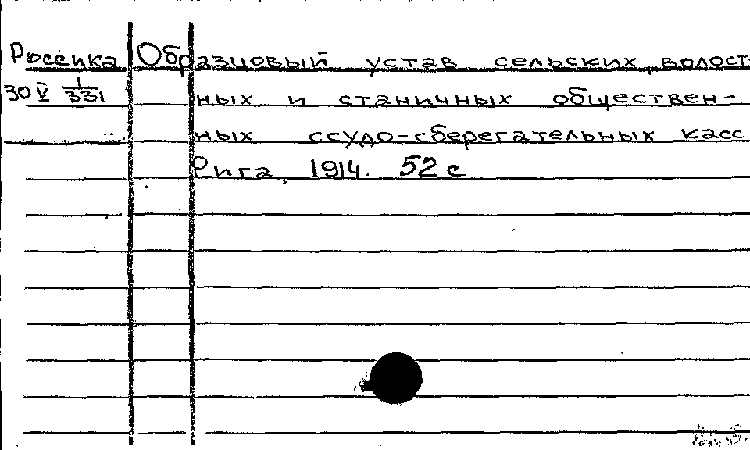 Россика Образцовый устав сельских, волост
30 V 1/331 ных и станичных обществен-
ных ссудо-сберегательных касс
Рига, 1914. 52 с